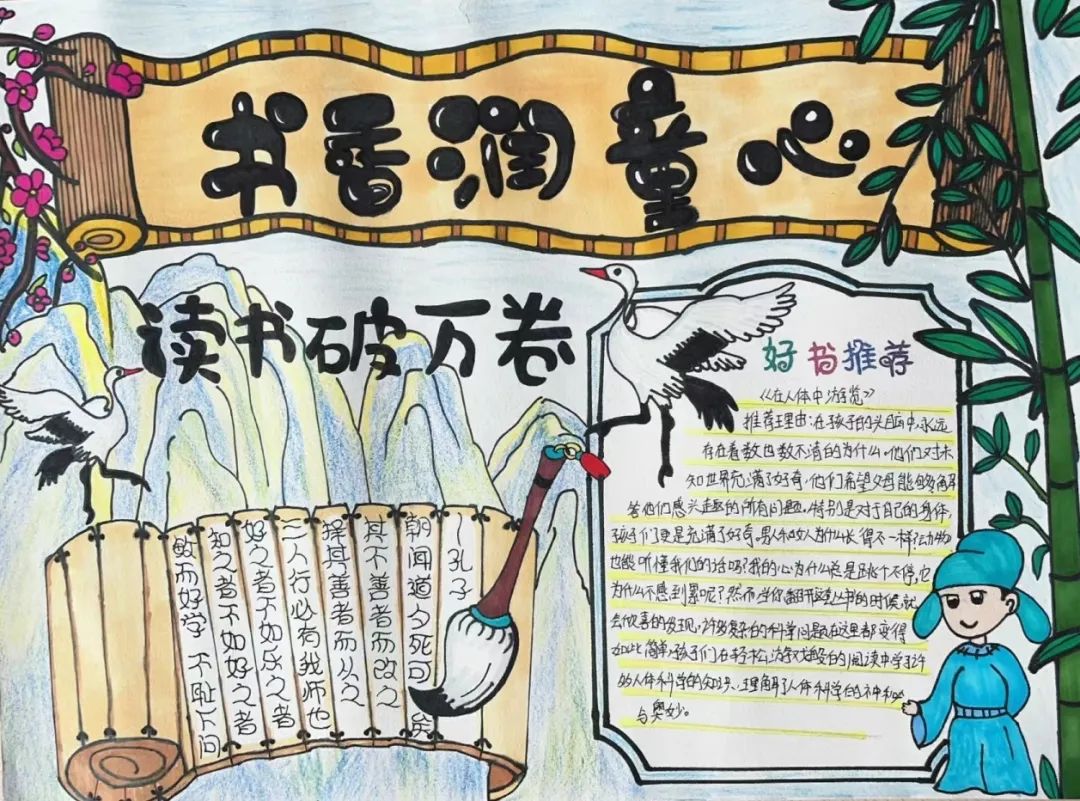 书香润童心
读书破万卷
敏而好学 不耻下问
知之者不如好之者
好之者不如乐之者
三人行必有我师也
择其善者而从之
其不善者而改之
朝闻道夕死可矣
—孔子
好书推荐
《在人体中游览》
推荐理由:在孩子的头脑中,永远
存在着数也数不清的为什么。他们对未
知世界充满了好奇,他们希望父母能够解
答他们感兴趣的所有问题。特别是对于自己的身体,
孩子们更是充满了好奇。男人和女人为什么长得不一样?动物
也能听懂我们的话吗?我的心为什么总是跳个不停,它
为什么不感到累呢?然而当你翻开这丛书的时候,就
会欣喜的发现,许多复杂的科学问题在这里都变得
如此简单,孩子们在轻松游戏般的阅读中学了许
多人体科学的知识、理解了人体科学的神秘
与奥妙。